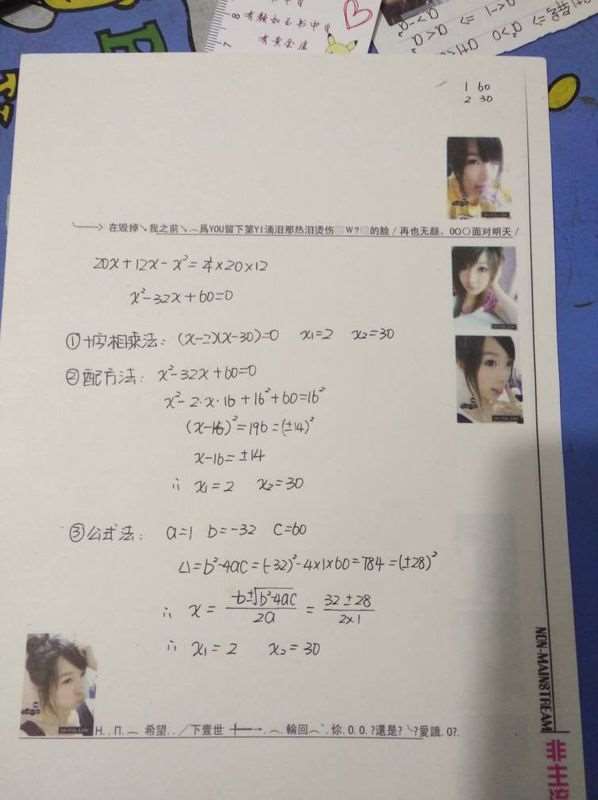 8 有赖和玉书中日
7 有黄金屋
1 60
2 30
在毁掉↘我之前↘︵爲YOU留下第YI滴泪那热泪烫伤 W?的脸/再也无颜。OOO面对明天/
20x+12x-x²=4×20×12
x²-32x+60=0
①十字相乘法: (x-2)(x-30)=0 x₁=2 x₂=30
②配方法: x²-32x+60=0
x²-2·x·16+16²+60=16²
(x-16)²=196=(±14)²
x-16=±14
∴ x₁=2 x₂=30
③公式法: a=1 b=-32 c=60
△=b²-4ac=(-32)²-4×1×60=784=(±28)²
∴ x=(-b±√(b²-4ac))/2a=(32±28)/(2×1)
∴ x₁=2 x₂=30
H..П.︵ 希望../下壹世 ︵.輪回︵.伱.0.0.?還是?↘?愛誐.0?.
NON-MAINSTREAM
非主流